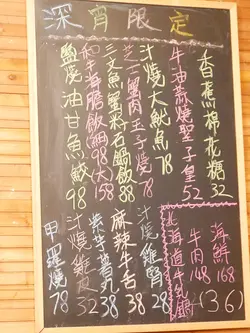 深宵限定
香蕉棉花糖 32
牛油蒜燒聖子皇 52
汁燒大魷魚 78
芝士蟹肉玉子燒 78
三文魚蟹籽石鍋飯 88
和牛海膽飯(細)98(大)158
鹽燒油甘魚鮫 98
海鮮 168
牛肉 148
北海道牛乳鍋
(36)
汁燒雞腎 28
麻辣牛舌 38
紫牛薯丸 38
汁燒雞皮 32
甲羅燒 78